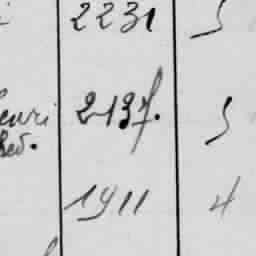 2231 5
enri 2137. 5
1911 4